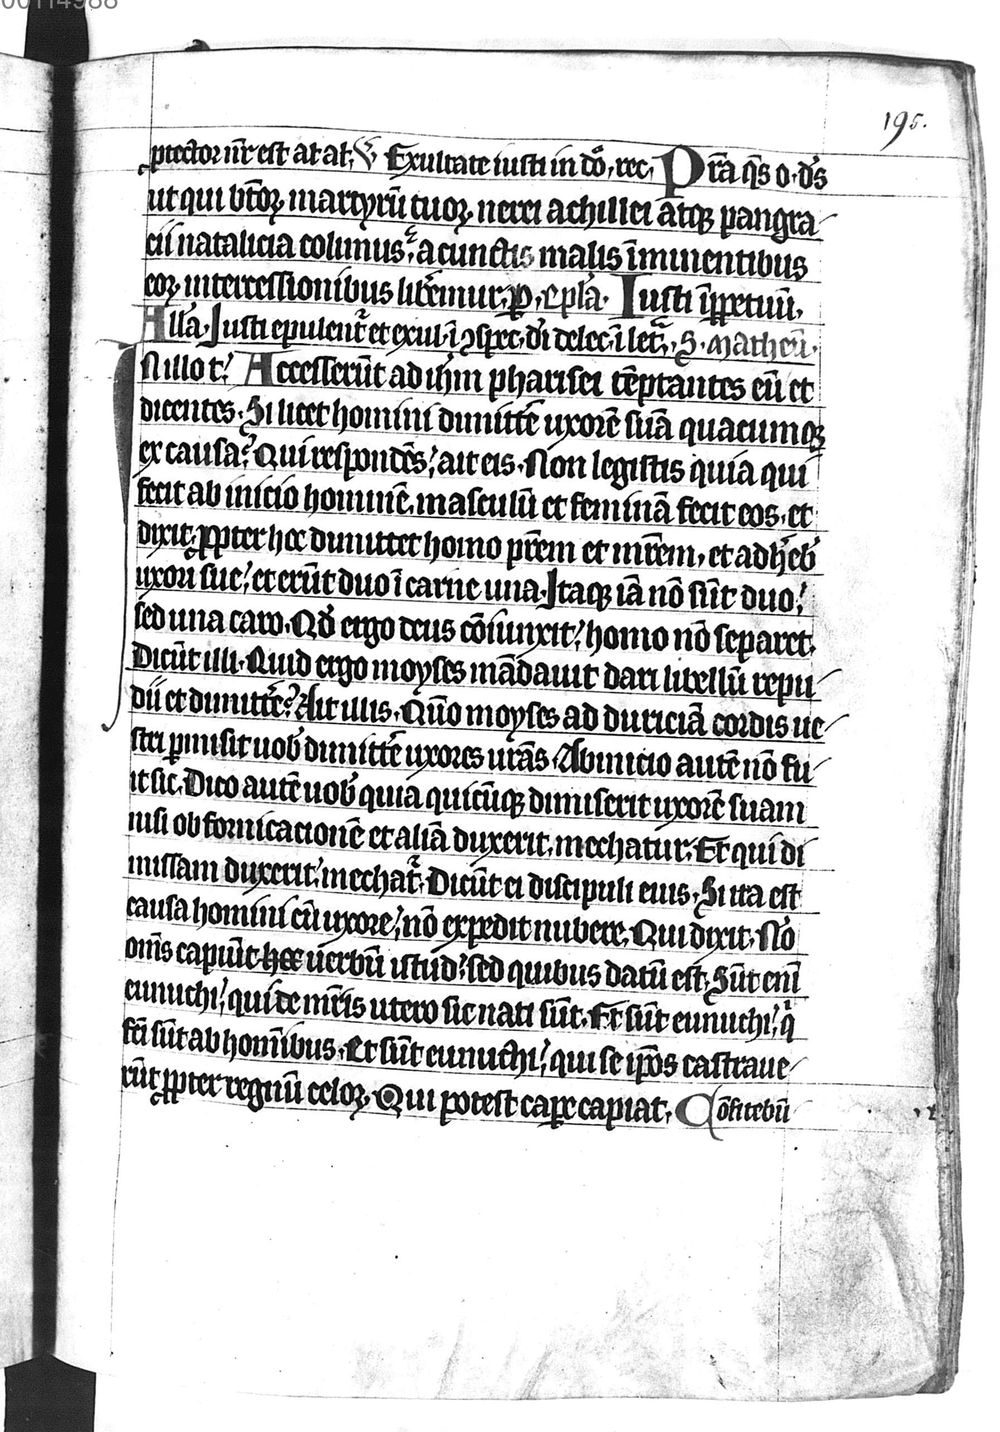 00114988
195.
ꝓtector nr̄ est aĺ aĺ. ℣ Exultate iusti in dō. rec. Pr̄a q̄s o. ds̄
ut qui bt̄oꝝ martyrū tuoꝝ nerei achillei atqꝫ pangra
cii natalicia colimus. a cunctis malis īminentibus
eoꝝ intercessionibus lib̄emur. ꝑ. Epl̄a. Iusti īꝑpetuū.
All̄a. Iusti epulent᷑ et exul. ī ꝯspec. dī delec. ī let᷑. S. Matheū.
N illo t. Accesserūt ad ih̄m pharisei tēptantes eū et
dicentes. Si licet homini dimittē uxorē suā quacumqꝫ
ex causa. Qui respondēs. ait eis. Non legistis quia qui
fecit ab inicio hominē. masculū et feminā fecit eos. et
dixit. ꝓpter hoc dimittet homo pr̄em et mr̄em. et adh̄eb
uxori sue. et erūt duo ī carne una. Itaqꝫ iā nō sūt duo.
sed una caro. Qd̄ ergo deus cōiunxit. homo nō separet.
Dicūt illi. Quid ergo moyses mādauit dari libellū repu
dii et dimittē. Ait illis. Qm̄o moyses ad duriciā cordis ue
stri ꝑmisit uob dimittē uxores urās. Ab inicio autē nō fu
it sic. Dico autē uob quia quicūqꝫ dimiserit uxorē suam
nisi ob fornicacionē et aliā duxerit. mechatur. Et qui di
missam duxerit. mechat᷑. Dicūt ei discipuli eius. Si ita est
causa homini cū uxore. nō expedit nubere. Qui dixit. Nō
oms̄ capiūt hoc uerbū istud. sed quibus datū est. Sūt enī
eunuchi. qui de mr̄is utero sic nati sūt. Et sūt eunuchi. qͥ
fc̄i sūt ab homībus. Et sūt eunuchi. qui se ip̄os castraue
rūt ꝓpter regnū celoꝝ. Qui potest caꝑe capiat. Cōfitebū